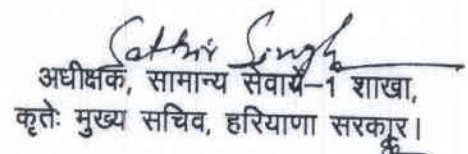 Sathir Singh
अधीक्षक, सामान्य सेवायें–1 शाखा,
कृतेः मुख्य सचिव, हरियाणा सरकार।